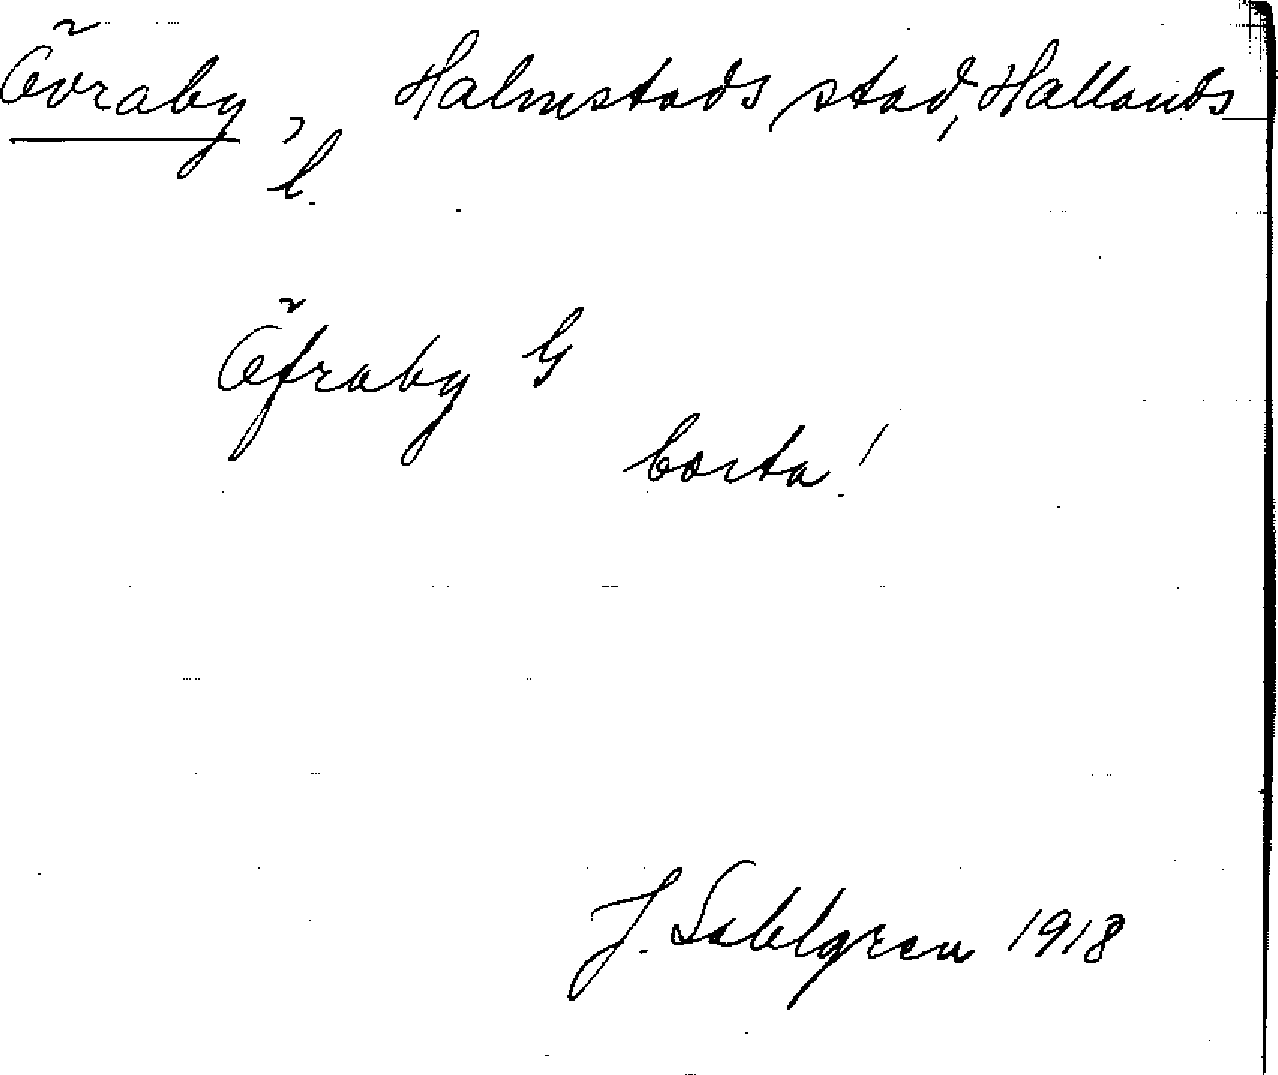 Övraby, Halmstads stad, Hallands
l.
Öfraby G
borta!
J. Sahlgren 1918